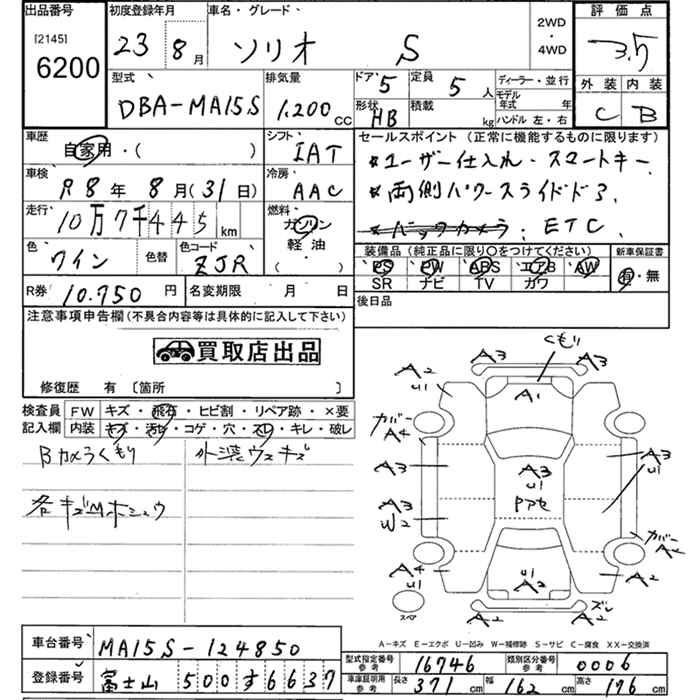 出品番号
[2145]
6200
初度登録年月
23年 8月
車名・グレード
ソリオ S
2WD
・
4WD
評価点
3.5
外装 内装
C B
型式
DBA-MA15S
排気量
1.200 CC
ドア 5
定員 5人
形状 HB
積載 kg
ディーラー・並行
モデル年式 年
ハンドル 左・右
車歴
自家用・( )
シフト
IAT
車検
R8年 8月(31日)
冷房
AAC
走行
10万7千445km
燃料
ガソリン
軽油
( )
色
ワイン
色替
色コード
ZJR
R券 10.750円
名変期限 月 日
セールスポイント(正常に機能するものに限ります)
*ユーザー仕入れ・スマートキー
*両側パワースライドドア.
*バックカメラ. ETC.
装備品(純正品に限り○をつけてください)
PS PW ABS エアB AW
SR ナビ TV カワ
新車保証書
有・無
後日品
注意事項申告欄(不具合内容等は具体的に記入して下さい)
買取店出品
修復歴 有 〔箇所 〕
検査員記入欄
FW キズ・飛石・ヒビ割・リペア跡・×要
内装 キズ・汚れ・コゲ・穴・スレ・キレ・破レ
Bカメラくもり 外装ウスキズ
各キズMホシュウ
くもり
A3 A3
A2
U1
A1
カバー
A4
A3
A3
U1
A3
U1
A3
W2
Pアセ
カバー
A2
A4
U1
U1
A3
A2
ズレ
A2 A2
スペア
A-キズ E-エクボ U-凹み W-補修跡 S-サビ C-腐食 XX-交換済
車台番号 MA15S-124850
登録番号 富士山 500 す 6637
型式指定番号 参考 16746
類別区分番号 参考 0006
車庫証明用 参考 長さ 371cm 幅 162cm 高さ 176cm